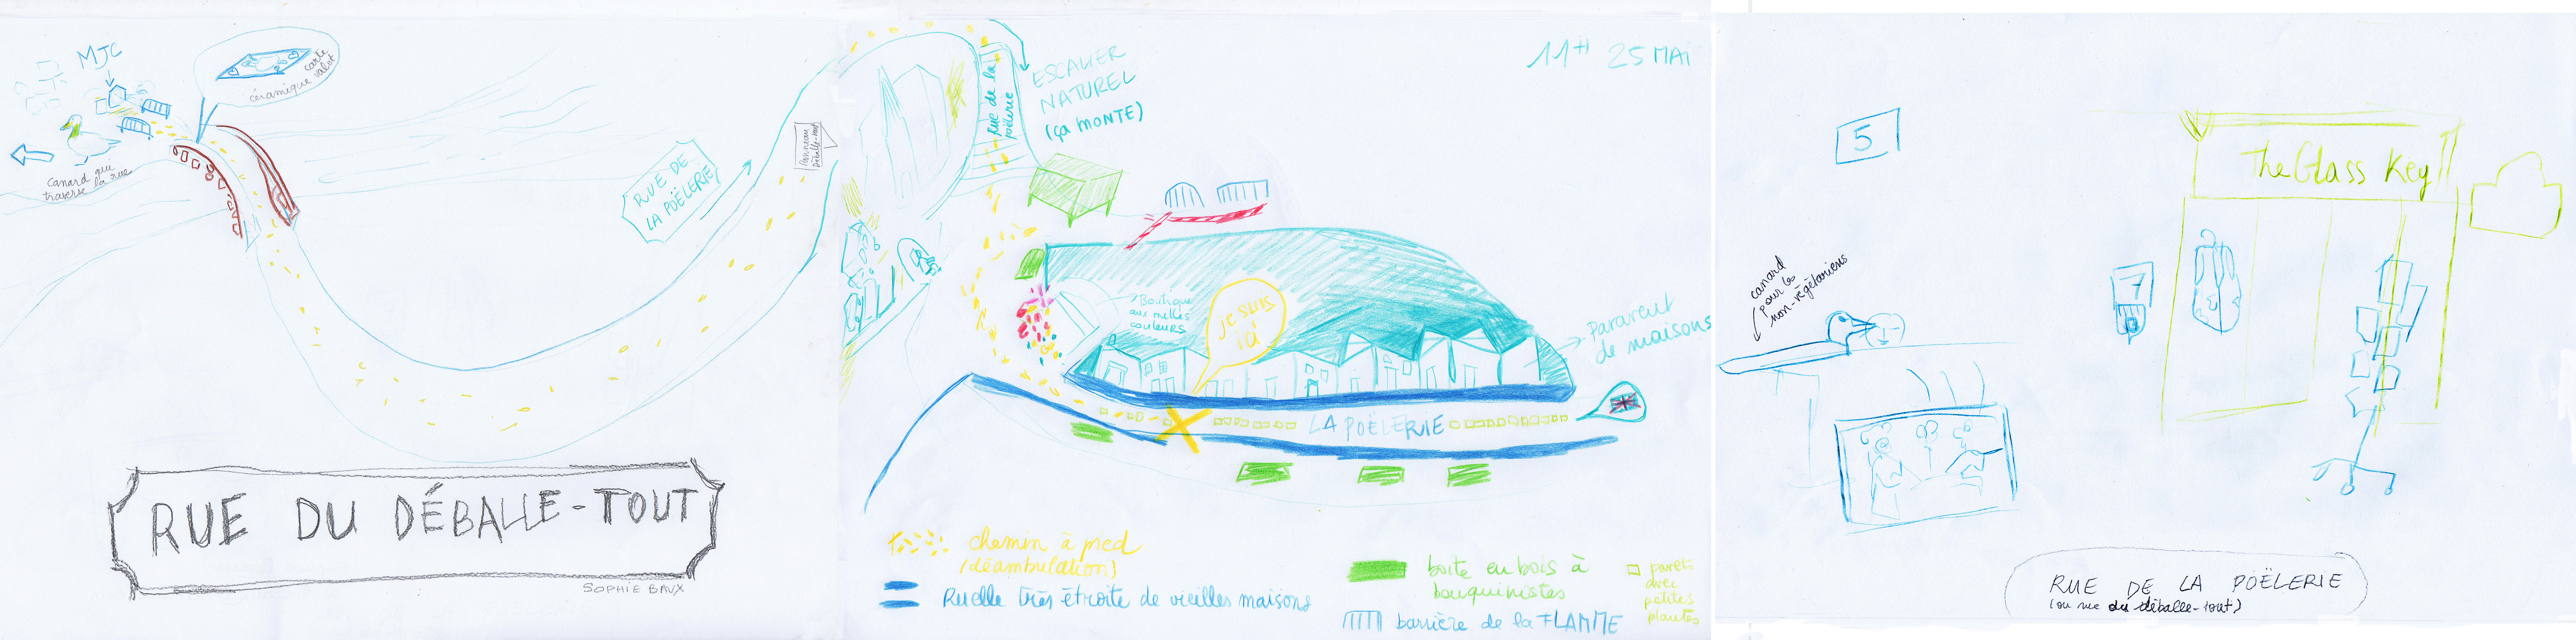 MJC
carte
valet
céramique
canard qui
traverse la rue
RUE DE
LA POËLERIE
Panneau
Déballe-tout
RUE DU DÉBALLE-TOUT
SOPHIE BAUX
Rue de la
poêlerie
ESCALIER
NATUREL
(ça MONTE)
11H 25 MAI
Boutique
aux milles
couleurs
je suis
ici
Paravent
de maisons
LA POËLERIE
chemin à pied
(déambulation)
Ruelle très étroite de vieilles maisons
boite en bois à
bouquinistes
barrière de la FLAMME
pavés
avec
petites
plantes
5
canard
pour les
non-végétariens
The Glass Key
7
RUE DE LA POËLERIE
(ou rue du déballe-tout)